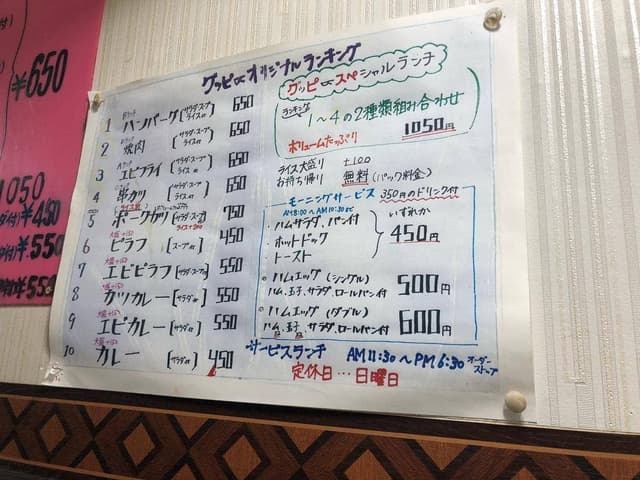 ¥650
1050
付) ¥450
付) ¥550
付 ¥550
グッピーオリジナルランキング
1 ハンバーグ (サラダ・スープ ライス付) 650
2 焼肉 (サラダ・スープ ライス付) 650
3 エビフライ (サラダ・スープ ライス付) 650
4 串カツ (サラダ・スープ ライス付) 650
5 ポークカツ (サラダ・スープ) ライス+200 750
6 大盛+150 ピラフ (スープ付) 450
7 大盛+150 エビピラフ (スープ付) 550
8 大盛+150 カツカレー (サラダ付) 550
9 大盛+150 エビカレー (サラダ付) 550
10 大盛+150 カレー (サラダ付) 450
グッピースペシャルランチ
ランキング
1～4の2種類組み合わせ
ボリュームたっぷり 1050円
ライス大盛り +100
お持ち帰り 無料 (パック料金)
モーニングサービス 350円のドリンク付
AM8:00～AM10:30まで いずれか
・ハムサラダ、パン付
・ホットドック
・トースト
450円
ハムエッグ (シングル)
ハム、玉子、サラダ、ロールパン付 500円
ハムエッグ (ダブル)
ハム、玉子、サラダ、ロールパン付 600円
サービスランチ AM11:30～PM6:30 オーダーストップ
定休日…日曜日